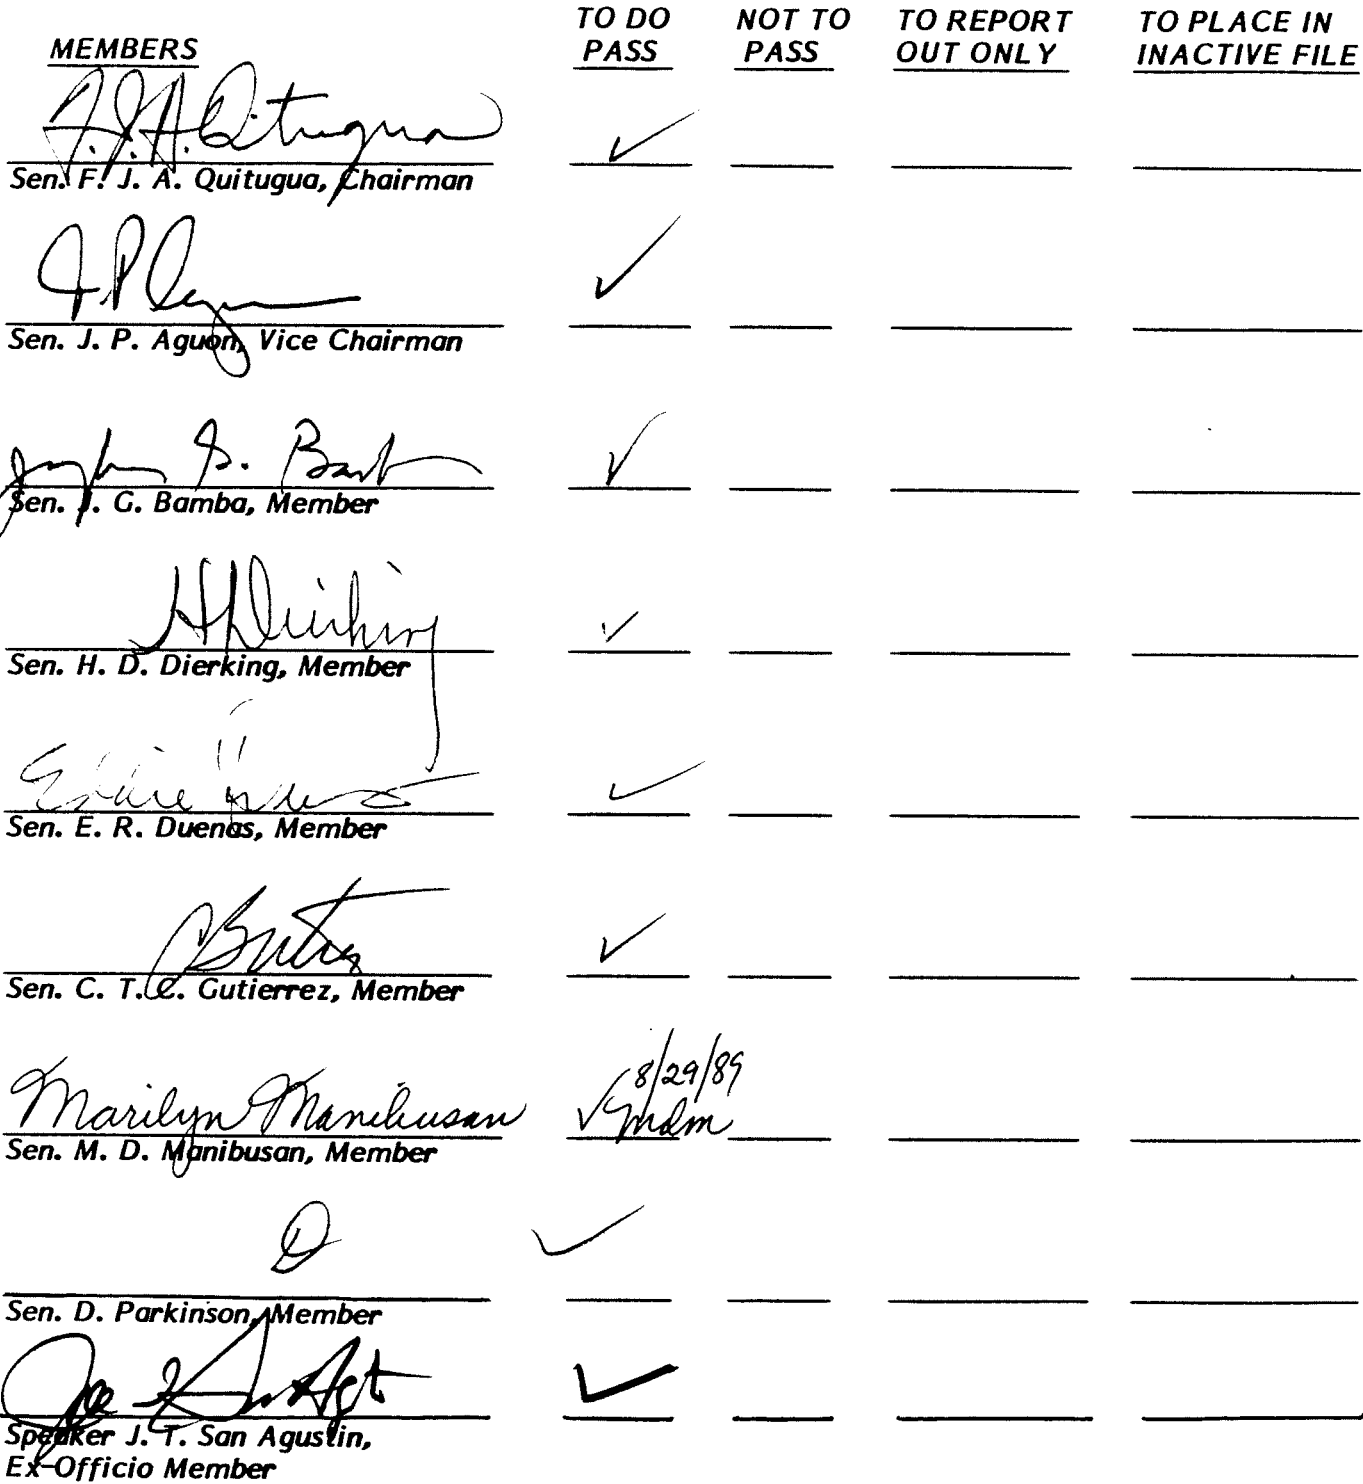 MEMBERS
TO DO PASS
NOT TO PASS
TO REPORT OUT ONLY
TO PLACE IN INACTIVE FILE
F. J. A. Quitugua
Sen. F. J. A. Quitugua, Chairman
Sen. J. P. Aguon, Vice Chairman
G.
Sen. J. G. Bamba, Member
Sen. H. D. Dierking, Member
Eddie Duenas
Sen. E. R. Duenas, Member
Sen. C. T. C. Gutierrez, Member
8/29/89
Marilyn Manibusan
mdm
Sen. M. D. Manibusan, Member
Sen. D. Parkinson, Member
Joe
Speaker J. T. San Agustin,
Ex-Officio Member